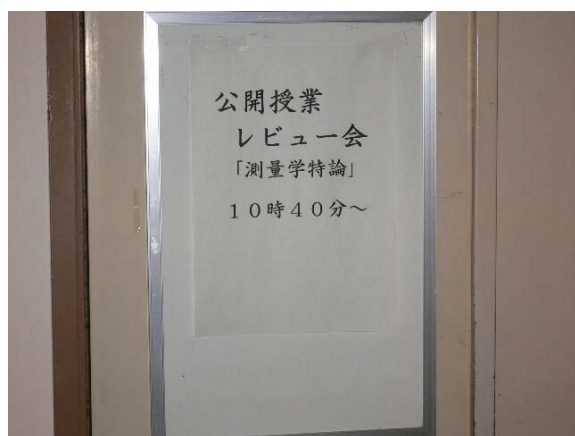 公開授業
レビュー会
「測量学特論」
１０時４０分～